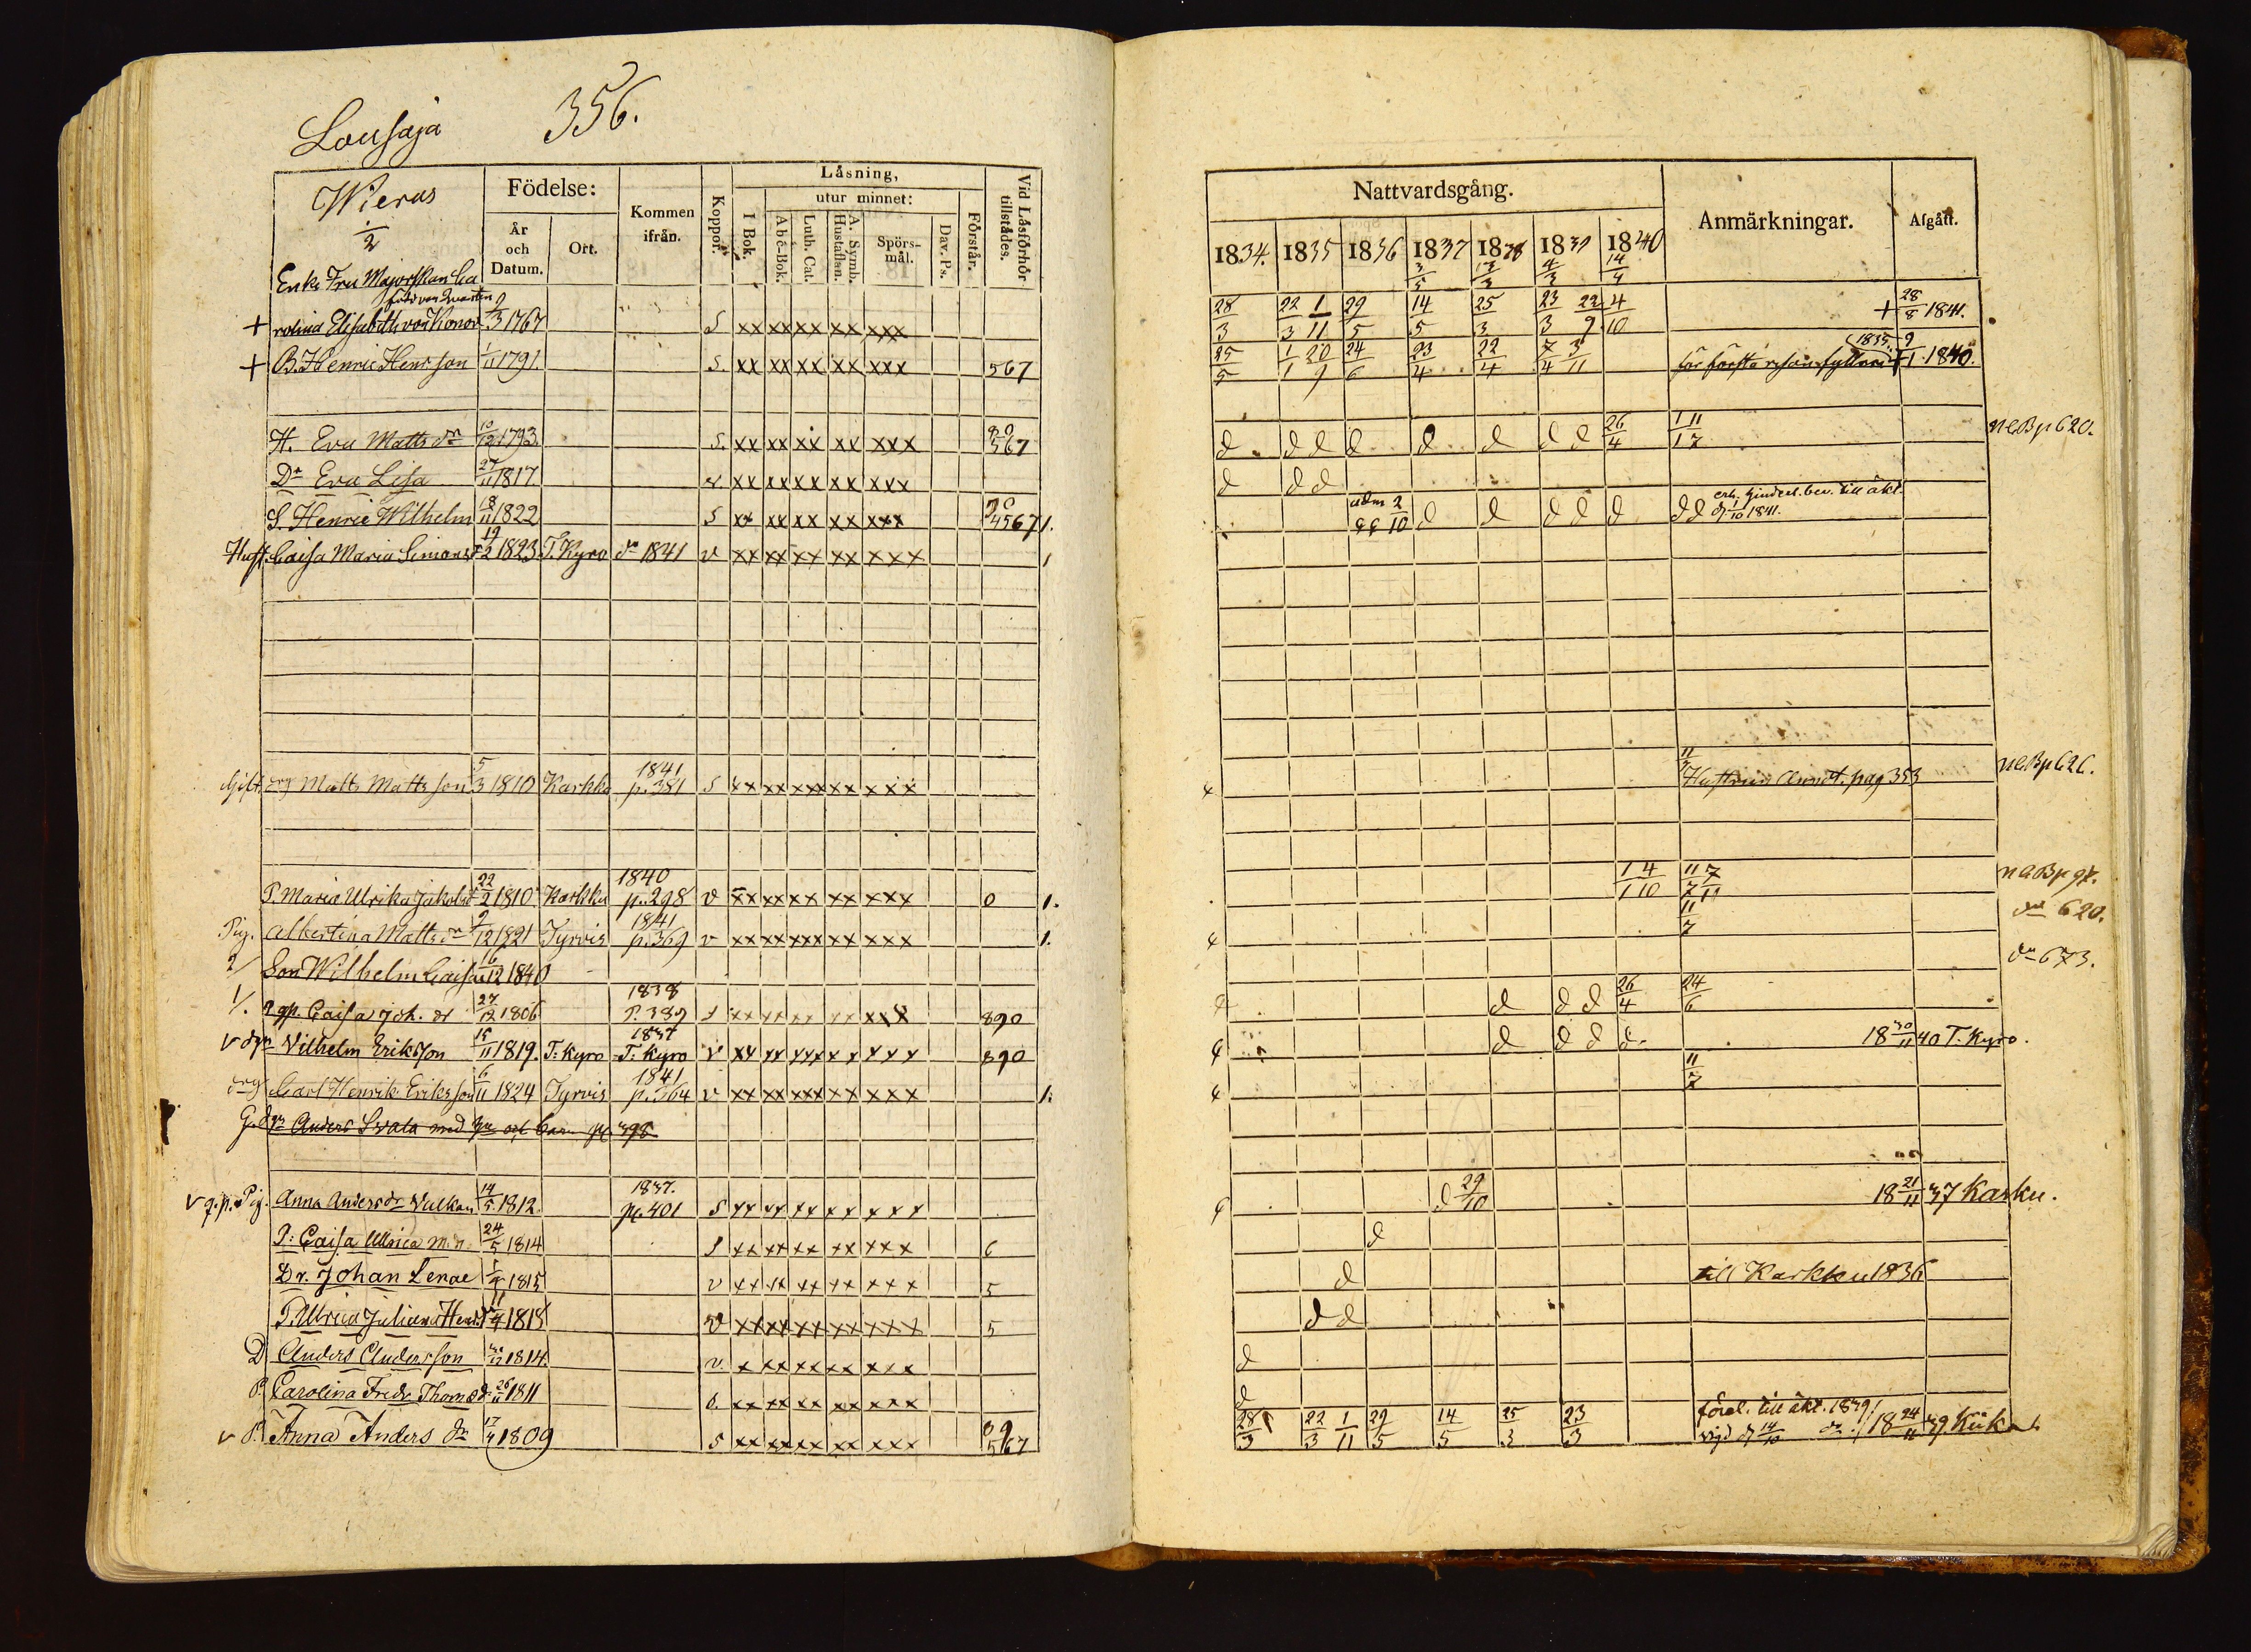 Lousaja 356.
Wieras
1/2
Födelse:
År och Datum.
Ort.
Kommen ifrån.
Koppor.
Läsning,
I Bok.
utur minnet:
A b c-Bok.
Luth. Cat.
A. Symb. Hustaflan.
Spörsmål.
Dav. Ps.
Förstår.
Vid Läsförhör tillstädes.
Nattvardsgång.
1834. 1835 1836 1837 1838 1839 1840
Anmärkningar.
Afgått.
Enke Fru Majorskan Ca
född von Qvanten
+ rolina Elisabeth von Konow 9/3 1767 S xx xx xx xx xxx 28/3 22/3 1/11 29/5 14/5 25/3 23/3 22/9 4/10 + 28/8 1841.
+ B. Henric Henrsson 1/11 1791. S. xx xx xx xx xxx 567 25/5 1/1 20/9 24/6 23/4 22/4 7/4 3/11 för första resan fylleri 1835. + 9/1 1840.
H. Eva Mattsdr 10/12 1793. S. xx xx xx xx xxx 567 d d d d d d d d 26/4 1/1 11/7 n C Bp 620.
Dr Eva Lisa 27/11 1817 v. xx xx xx xx xxx d d d
S. Henric Wilhelm 18/11 1822 S xx xx xx xx xxx 4567 1. adm 2/10 d d d d d d d erh. hinderl. bev. till äkt. d 1/10 1841.
Hust. Caisa Maria Simonsd 19/2 1823. T. Kyro dr 1841 v xx xx xx xx xxx 1
Gift. drg Matts Mattsson 5/3 1810 Karkku 1841 p. 381 S xx xx xx xx xxx 11/7 Hustrun Annot. pag 353 n C Bp 626.
P. Maria Ulrika Jakobsd 22/2 1810 Karkku 1840 p. 298 v xx xx xx xx xxx 0 1. 1/1 4/10 11/7 7/11
Pig. Albertina Mattsdr 9/12 1821 Tyrvis 1841 p. 369 v xx xx xxx xx xxx 1. 11/7 620.
2/ Son Wilhelm Caisas 16/12 1840 dr 673.
1/. qp. Caisa Joh. dr 27/12 1806 1838 P. 389 s xx xx xx xx xxx 890 d d d 26/4 24/6
v dgn Vilhelm Eriksson 15/11 1819. T: Kyro 1837 T: Kyro v xx xx xx xx xxx 890 d d d d 18 30/11 40 T. Kyro.
drg Carl Henrik Eriksson 6/11 1824 Tyrvis 1841 p. 364 v xx xx xxx xx xxx 1. 11/7
G. dgn Anders Svala med hu och barn pg 398
v q.p. Pig. Anna Andersdr Vulkan 14/5 1812. 1837. pg. 401 S xx xx xx xx xxx d 29/10 18 21/11 37 Karku.
P: Caisa Ulrica 24/5 1814 s xx xx xx xx xxx 6 d
Dr. Johan Lenae 1815 v xx xx xx xx xxx 5 d till Karkku 1836
P. Ulrica Juliana Henrdr 11/4 1818 v xx xx xx xx xxx 5 d d
D Anders Andersson 1814. v. x xx xx xx xxx d
P. Carolina Fredr Thomasdr 26/11 1811 xx xx xx xx xxx d
v P. Anna Andersdr 17/4 1809 S xx xx xx xx xxx 89 567 28/3 22/3 1/11 29/5 14/5 25/3 23/3 förel. till äkt. 1839/ vigd d 14/10 dr. 18 24/11 39 Kiik